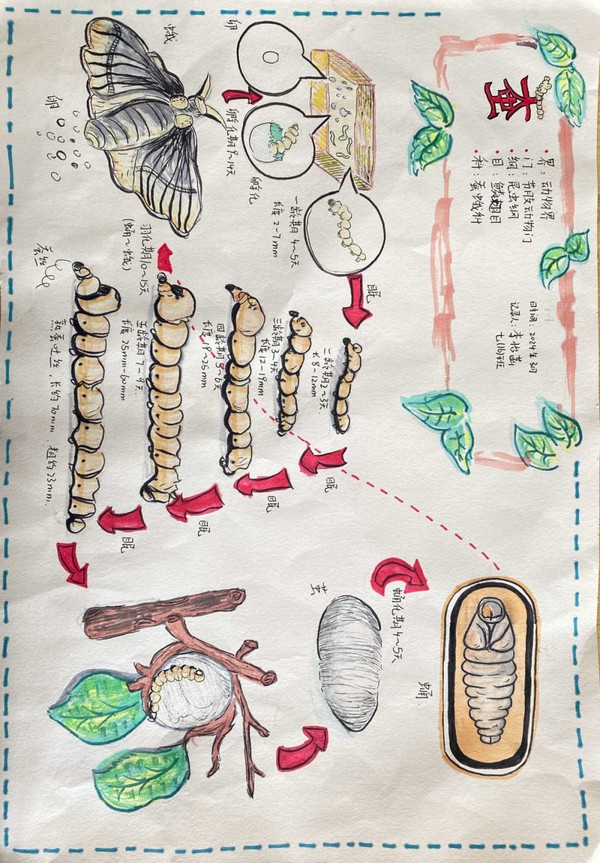 蚕
·界：动物界
·门：节肢动物门
·纲：昆虫纲
·目：鳞翅目
·种：蚕蛾科
日期：2024
记录人：李
卵
孵化期9~14天
孵化
一龄期4~5天
长度2-7mm
眠
二龄期2~3天
长8-12mm
眠
三龄期3~4天
长度12-19mm
眠
四龄期5~6天
长度
25mm
眠
五龄期7~9天
长度25mm-60mm
眠
蚕丝
熟蚕吐丝，长约70mm 粗约23mm.
茧
蛹化期4~5天
蛹
羽化期10~15天
(蛹~蛾)
蛾
卵